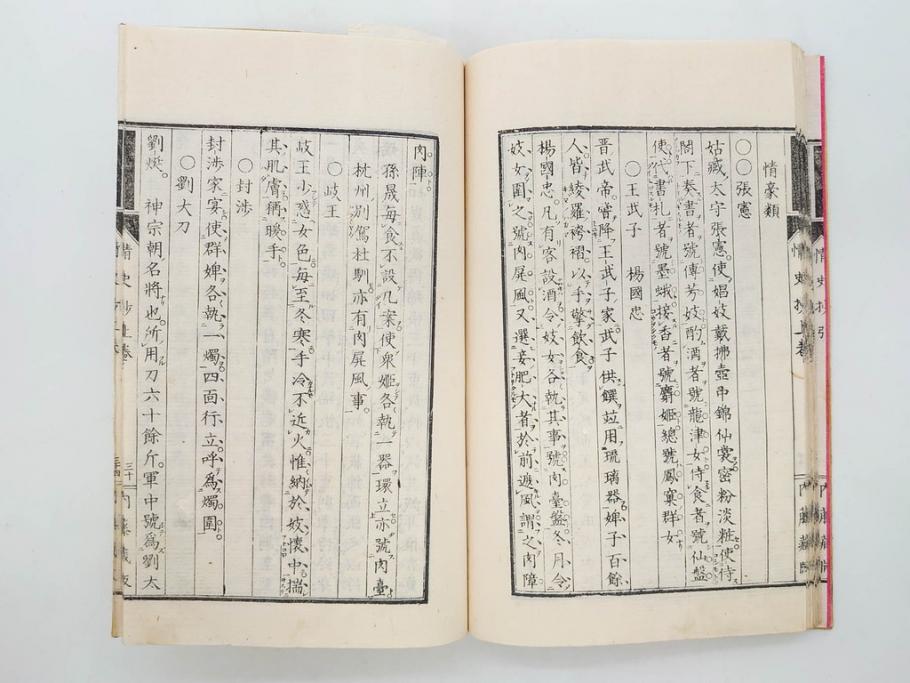 情豪類
○○張憲
姑臧太守張憲使娼妓戴拂壺巾錦仙裳密粉淡粧使侍
閤下奏書者號傳芳妓酌酒者號龍津女侍食者號仙盤
使代書札者號墨娥按香者號麝姬總號鳳窠群女
○王武子　楊國忠
晋武帝嘗降王武子家武子供饌竝用琉璃器婢子百餘
人皆綾羅袴褶以手擎飲食
楊國忠凡有客設酒令妓女各執其事號肉臺盤冬月令
妓女圍之號肉屏風又選妾肥大者於前遮風謂之肉障
肉陣
孫晟每食不設几案使衆姬各執一器環立亦號肉臺
杭州別駕杜馴亦有肉屏風事
○岐王
岐王少惑女色每至冬寒手冷不近火惟納於妓懷中揣
其肌膚稱暖手
○封涉
封涉家宴使群婢各執一燭四面行立呼為燭圍
○劉大刀
劉　神宗朝名將也所用刀六十餘斤軍中號為劉大
情史抄上卷
情史抄引